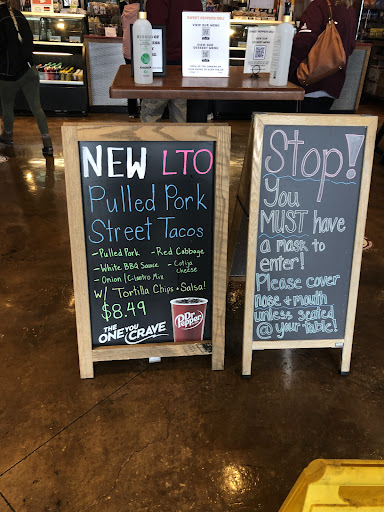 NEW LTO
Pulled Pork
Street Tacos
-Pulled Pork -Red Cabbage
-White BBQ Sauce -Cotija
cheese
-Onion/Cilantro Mix
W/ Tortilla Chips + Salsa!
$8.49
THE ONE YOU CRAVE
Dr Pepper
Stop!
You
MUST have
a mask to
enter!
Please cover
nose + mouth
unless seated
@ your table!
VIEW OUR